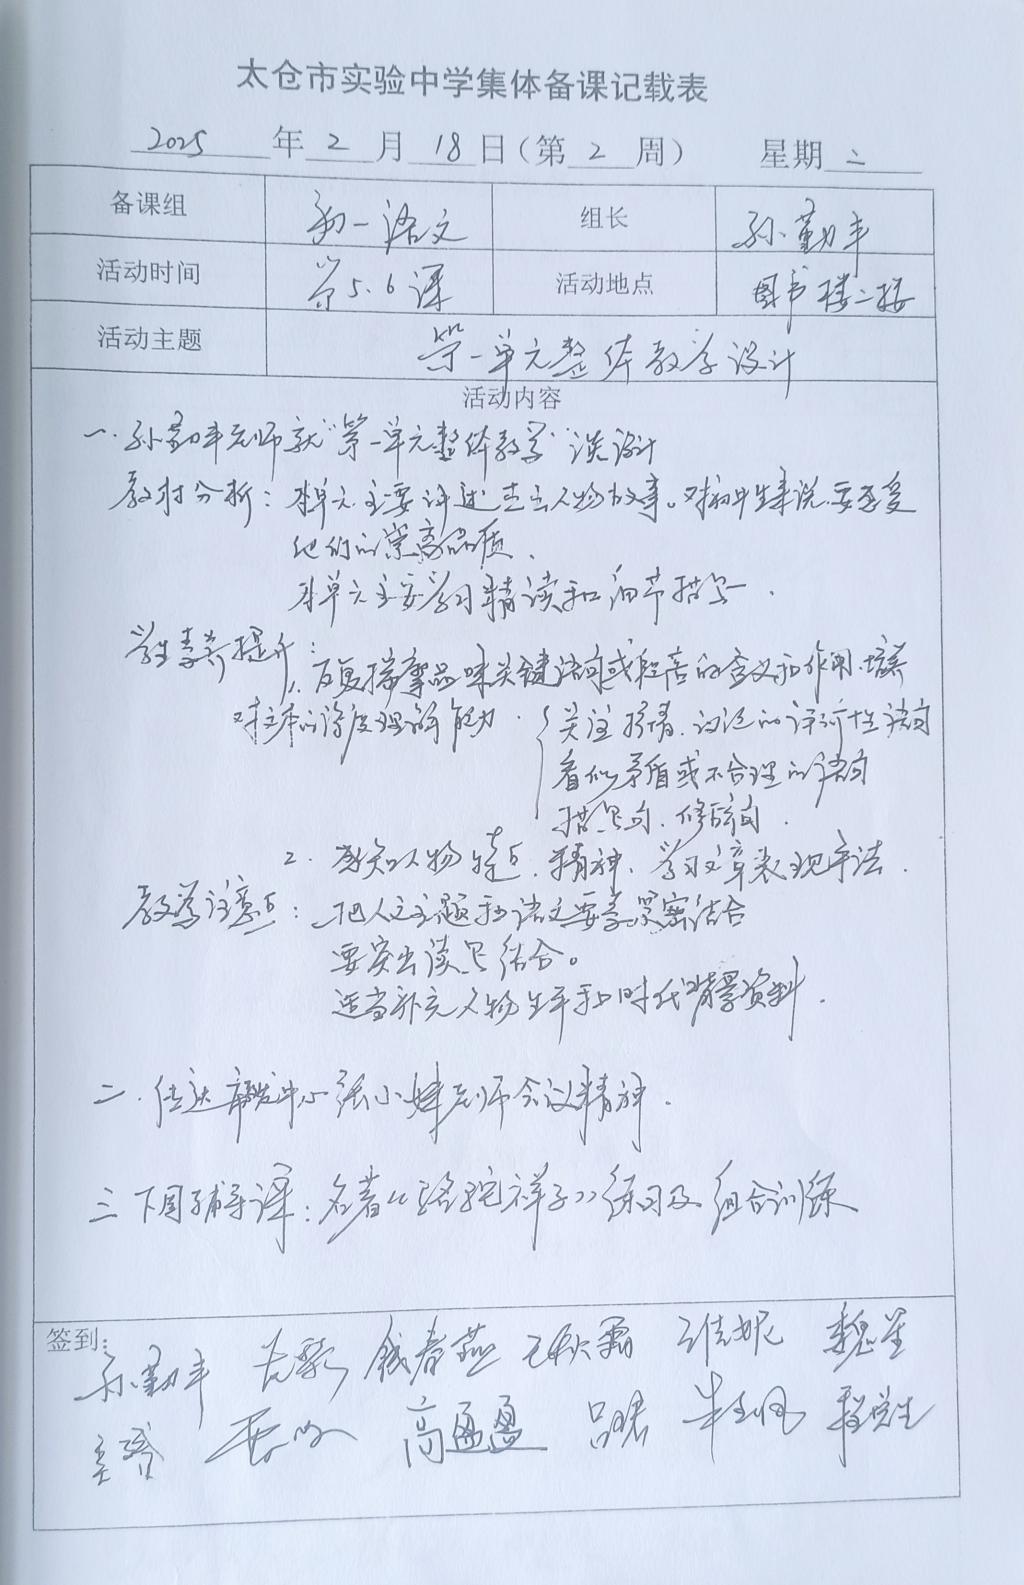 太仓市实验中学集体备课记载表
2025 年 2 月 18 日（第 2 周） 星期 二
备课组 初一语文 组长 孙勤丰
活动时间 第5、6课 活动地点 图书楼二楼
活动主题 第一单元整体教学设计
活动内容
一、孙勤丰老师就“第一单元整体教学”谈设计
教材分析：本单元主要讲述杰出人物故事。对初中生来说，要感受
他们的崇高品质、
本单元主要学习精读和细节描写、
学生素养提升：
1、反复揣摩品味关键语句或段落的含义和作用，培养
对文本的深度理解能力、 关注抒情、议论的评价性语句
看似矛盾或不合理的语句
描写句、修辞句、
2、感知人物特点、精神、学习文章表现手法、
教学注意点：把人文主题和语文要素紧密结合
要突出读写结合。
适当补充人物生平和时代背景资料、
二、传达 中心张小 老师会议精神、
三 下周辅导课：名著《骆驼祥子》练习及组合训练
签到：
孙勤丰 钱春燕 王秋霜 魏星
高盈盈 吕珺